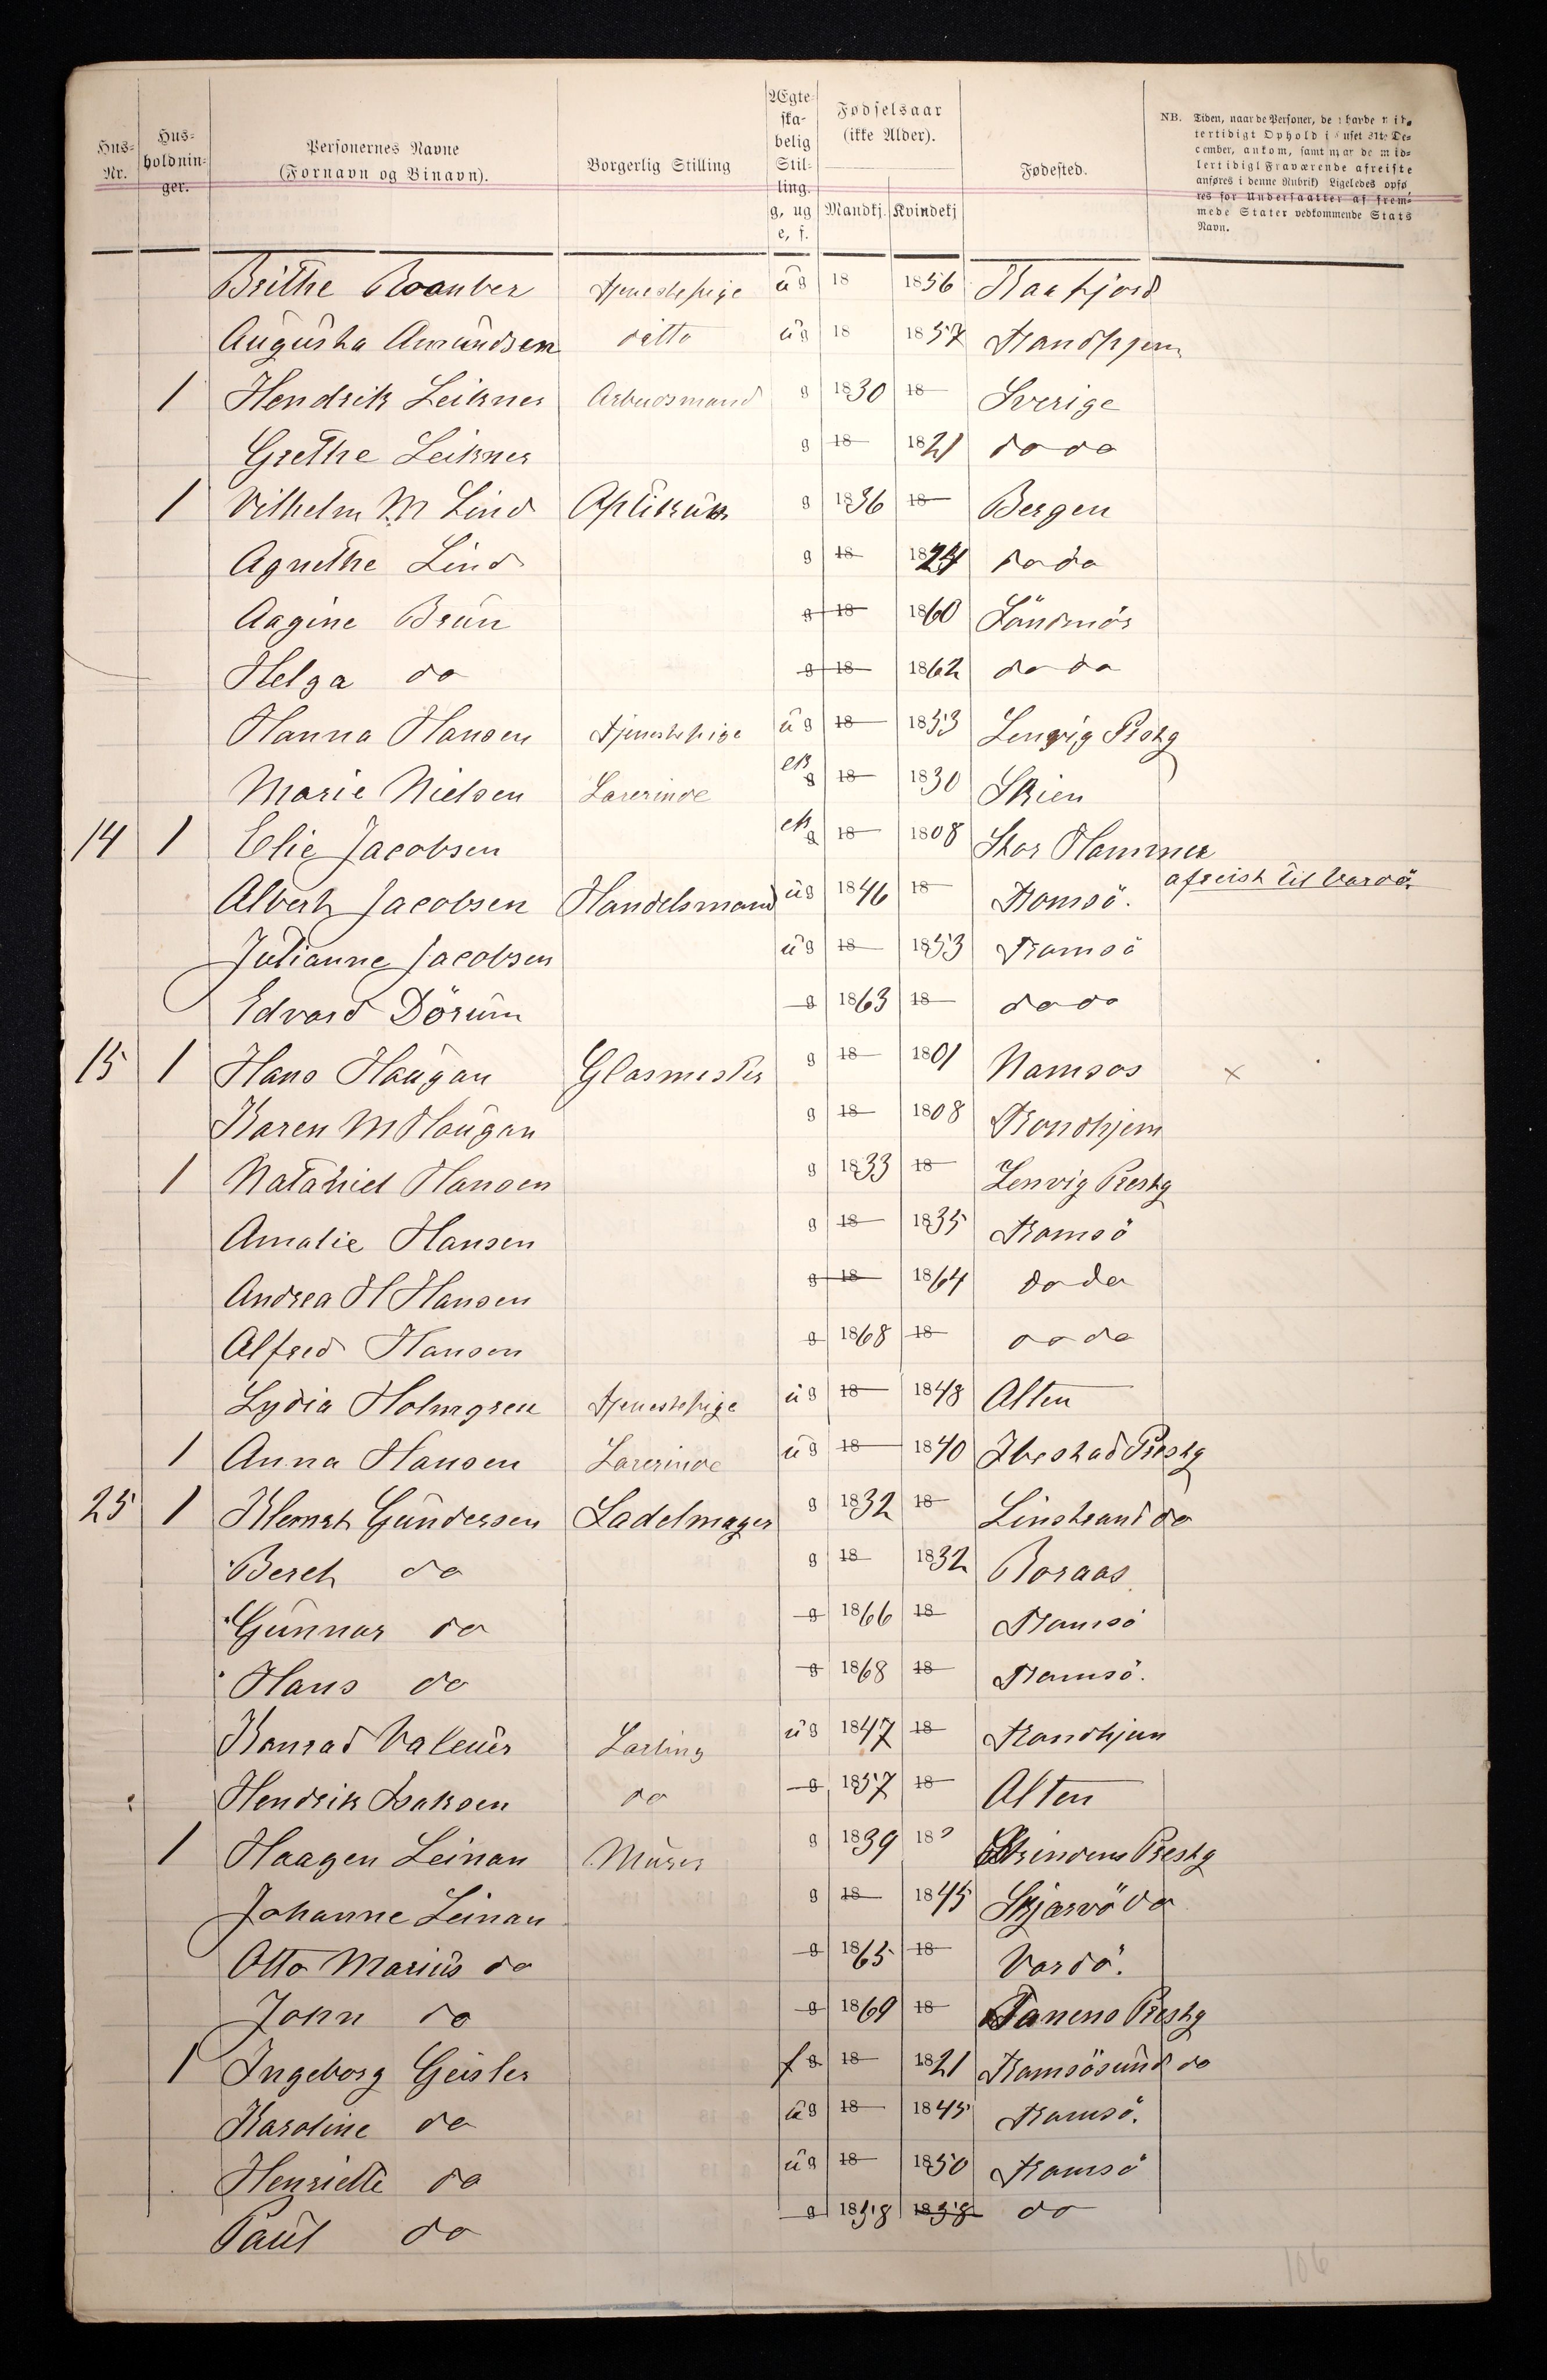 Hus-Nr. Hus-holdnin-ger. Personernes Navne (Fornavn og Binavn). Borgerlig Stilling Ægte-ska-belig Stil-ling. g, ug e, f. Fødselsaar (ikke Alder). Mandkj. Kvindekj Fødested. NB. Tiden, naar de Personer, de havde mid-
tertidigt Ophold i Huset 31te De-
cember, ankom, samt naar de mid-
lertidigt Fraværende afreiste
anføres i denne Rubrik) Ligeledes opfø
res for Undersaatter af frem-
mede Stater vedkommende Stats
Navn.
Brithe Tjenestepige ug 18 1856 Kaafjord
Augusta Amundsen ditto ug 18 1857 Trondhjem
1 Hendrik Leikner Arbeidsmand g 1830 18 Sverige
Grethe Leikner g 18 1821 do do
1 Vilhelm M Lind g 1836 18 Bergen
Agnethe Lind g 18 1824 do do
Aagine Brun g 18 1860 Söndmör
Helga do g 18 1862 do do
Hanna Hansen Tjenestepige ug 18 1853 Lenvig Prstg
Marie Nielsen Lærerinde ek g 18 1830 Skien
14 1 Elie Jacobsen ek g 18 1808 Stor Hammer
Albert Jacobsen Handelsmand ug 1846 18 Tromsö. afreist til Vardö
Julianne Jacobsen ug 18 1853 Tromsö
Edvard Dörum g 1863 18 do do
15 1 Hans Haugan Glasmester g 18 1801 Namsos x
Karen M Haugan g 18 1808 Trondhjem
1 Nataniel Hansen g 1833 18 Lenvig Prestg
Amalie Hansen g 18 1835 Tromsö
Andrea H Hansen g 18 1864 do do
Alfred Hansen g 1868 18 do do
Lydia Holmgren Tjenestepige ug 18 1848 Alten
1 Anna Hansen Lærerinde ug 18 1840 Ibestad Prestg
25 1 Klemet Gundersen Sadelmager g 1832 18 do
Beret do g 18 1832 Roraas
Gunnar do g 1866 18 Tromsö
Hans do g 1868 18 Tromsö.
Konrad Valeur Lærling ug 1847 18 Trondhjem
Hendrik Isaksen do g 1857 18 Alten
1 Haagen Leinan Murer g 1839 18 Strindens Prestg
Johanne Leinan g 18 1845 Skjærvö do
Otto Marius do g 1865 18 Vardö.
John do g 1869 18 Tanens Prestg
1 Ingeborg Geisler f g 18 1821 Tromsösund do
Karoline do ug 18 1845 Tromsö.
Henriette do ug 18 1850 Tromsö
Paul do g 1858 1858 do
106